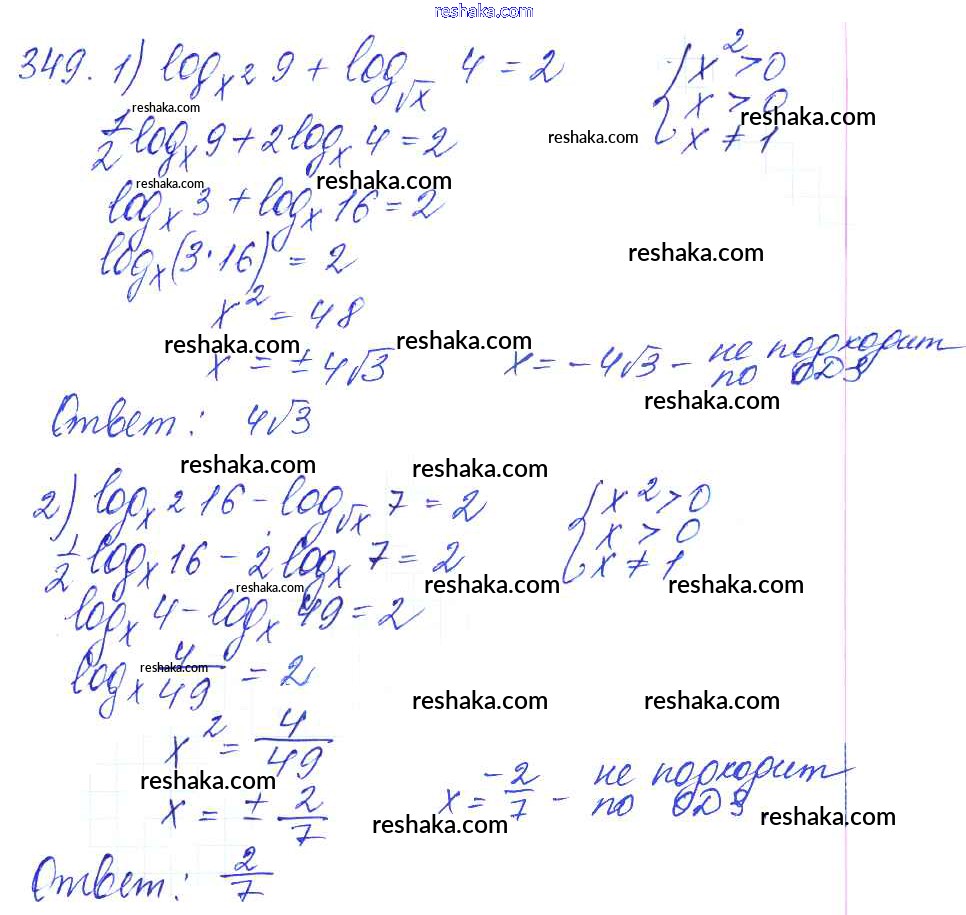 reshaka.com
349. 1) log_{x^2} 9 + log_{√x} 4 = 2 { x^2 > 0
reshaka.com
x > 0 reshaka.com
1/2 log_x 9 + 2 log_x 4 = 2 reshaka.com x ≠ 1
reshaka.com reshaka.com
log_x 3 + log_x 16 = 2
log_x (3·16) = 2 reshaka.com
x^2 = 48
reshaka.com reshaka.com
x = ± 4√3 x = -4√3 - не подходит
по ОДЗ
reshaka.com
Ответ: 4√3
reshaka.com reshaka.com
2) log_{x^2} 16 - log_{√x} 7 = 2 { x^2 > 0
x > 0
1/2 log_x 16 - 2 log_x 7 = 2 x ≠ 1
reshaka.com reshaka.com reshaka.com
log_x 4 - log_x 49 = 2
reshaka.com
log_x 4/49 = 2
reshaka.com reshaka.com
x^2 = 4/49
reshaka.com
x = ± 2/7 x = -2/7 - не подходит
по ОДЗ
reshaka.com reshaka.com
Ответ: 2/7